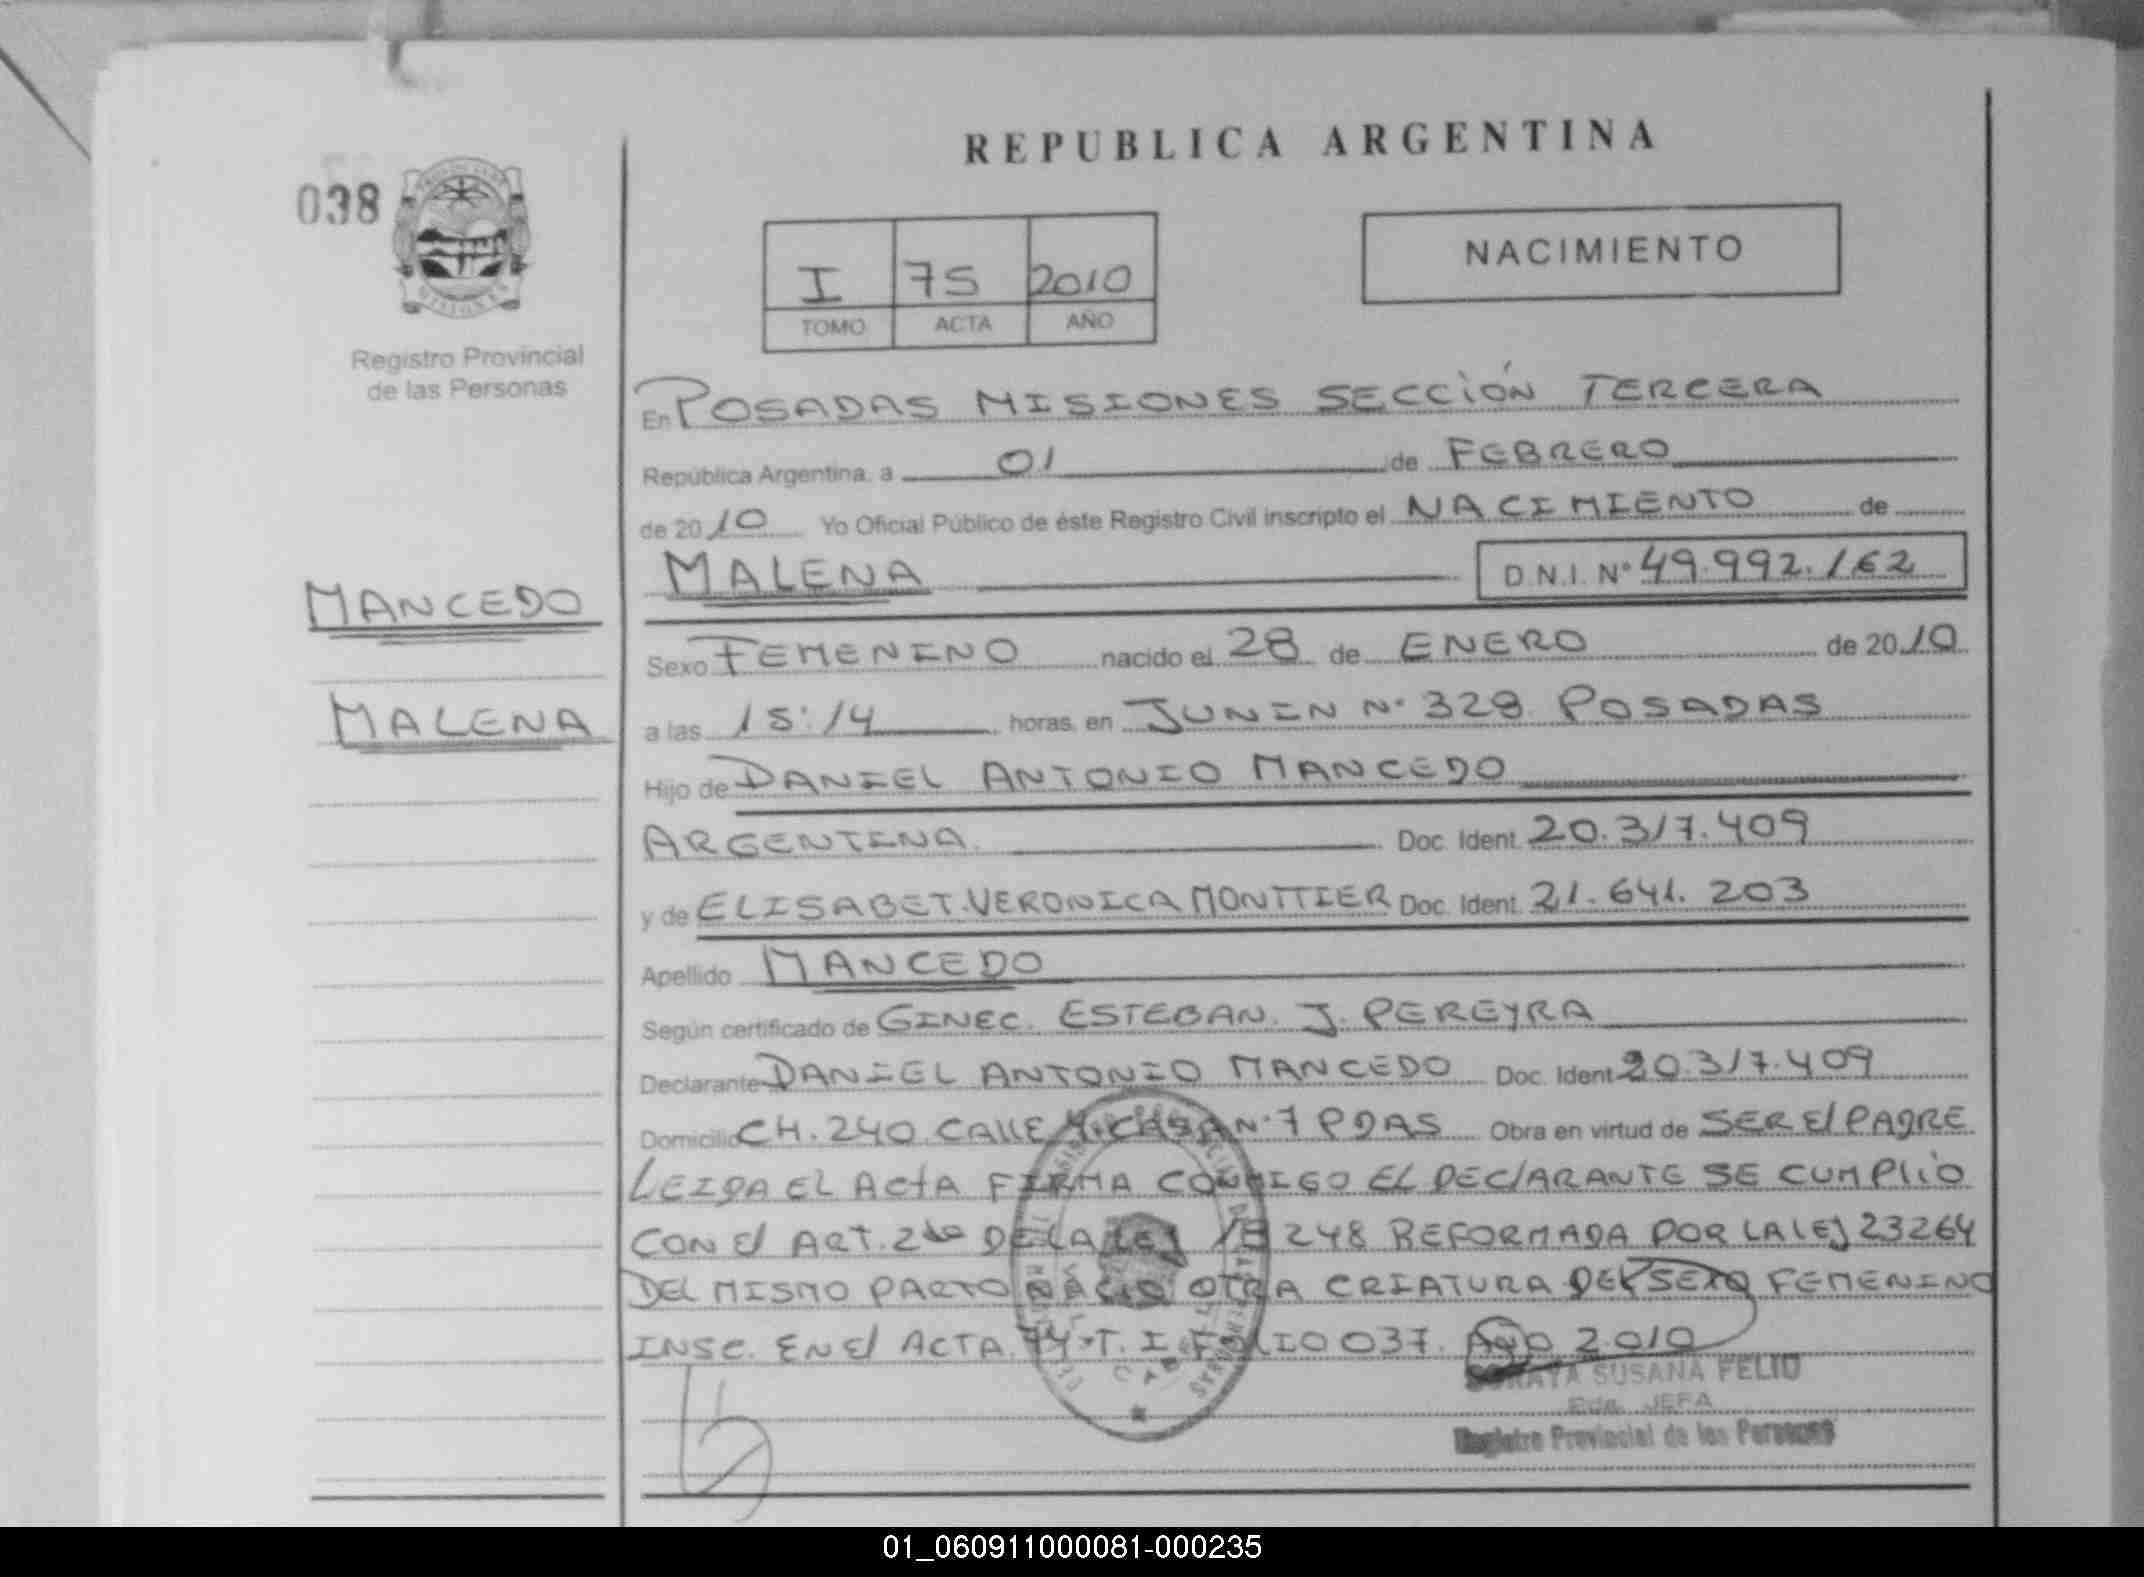 REPUBLICA ARGENTINA
038
I 75 2010
TOMO ACTA AÑO
NACIMIENTO
MISIONES
Registro Provincial
de las Personas
En POSADAS MISIONES SECCIÓN TERCERA
República Argentina, a 01 de FEBRERO
de 2010 Yo Oficial Público de éste Registro Civil inscripto el NACIMIENTO de
MALENA D.N.I. Nº 49.992.162
MANCEDO
MALENA
Sexo FEMENINO nacido el 28 de ENERO de 2010
a las 15:14 horas, en JUNIN Nº 328 POSADAS
Hijo de DANIEL ANTONIO MANCEDO
ARGENTINA. Doc. Ident. 20.317.409
y de ELISABET VERONICA MONTTIER Doc. Ident. 21.641.203
Apellido MANCEDO
Según certificado de GINEC. ESTEBAN. J. PEREYRA
Declarante DANIEL ANTONIO MANCEDO Doc. Ident 20.317.409
Domicilio CH. 240 CALLE Nº 7 PDAS Obra en virtud de SER El PADRE
LEIDA EL ACtA FIRMA CONMIGO EL DEClARANTE SE CUMPLIÓ
CON El ART. 2do DE LA LEy 18248 REFORMADA POR LA lEy 23264
DEL MISMO PARTO NACIO OTRA CRIATURA DEL SEXO FEMENINO
INSC. EN El ACTA. 74 T. I FOLIO 037. AÑO 2.010
SORAYA SUSANA FELIU
JEFA
Registro Provincial de las Personas
01_060911000081-000235